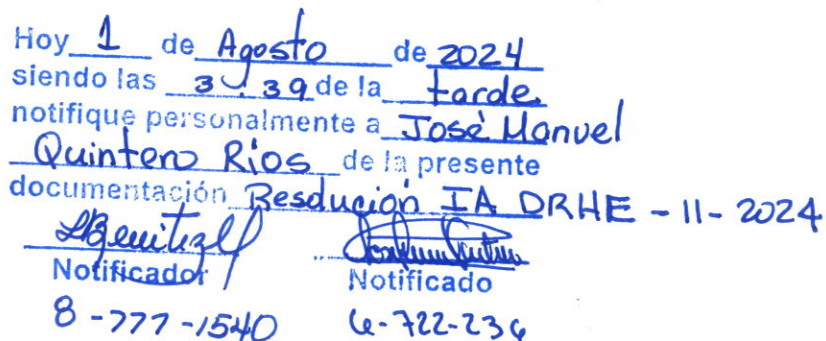 Hoy 1 de Agosto de 2024
siendo las 3:39 de la tarde
notifique personalmente a José Manuel
Quintero Rios de la presente
documentación Resolución IA DRHE - 11 - 2024
LBenitezG
Notificador Notificado
8-777-1540 6-722-236